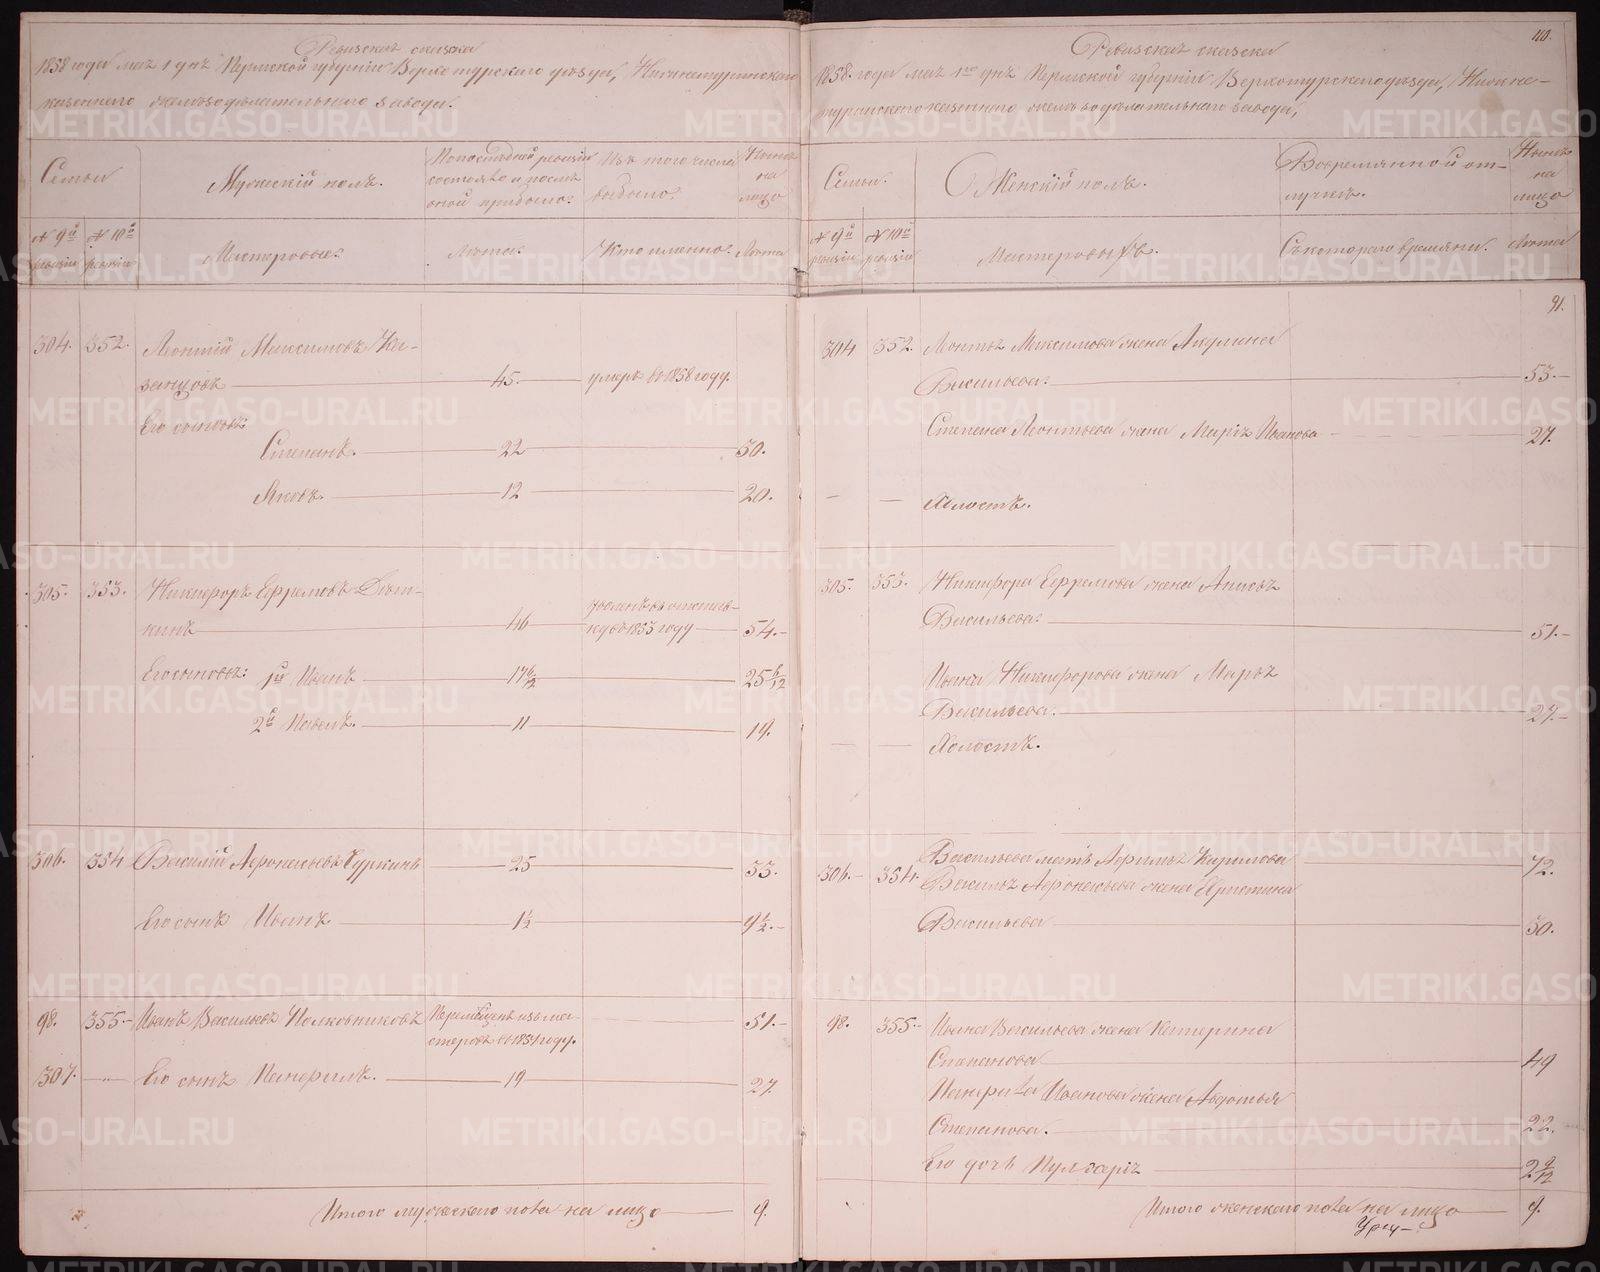 Ревизская сказка
1858 года мая 1 дня Пермской губернии Верхотурского уезда, Нижнетуринского
казенного железоделательнаго завода.
Семьи
Мужескій полъ.
По последней ревизіи
состояло и после
оной прибыло.
Изъ того числа
выбыло.
Ныне
на
лицо
№ 9й
ревизіи
№ 10й
ревизіи
Мастеровые:
Лета.
Кто именно.
Лета
304. 352. Леонтій Максимовъ Ка-
занцовъ 45. умеръ въ 1858 году.
Его сыновья:
Степанъ. 22 30.
Яковъ. 12 20.
305. 353. Никифоръ Ефремовъ
46 54.
въ 1853 году
Его сыновья: 1й Иванъ 17 6/12 25 6/12
2й Павелъ. 11 19.
306. 354 Василій Афонасьевъ Чуркинъ 25 33.
Его сынъ Иванъ 1½ 9½.
98. 355. Иванъ Васильевъ Полковниковъ Перемещенъ изъ ма-
стеровъ въ 1851 году. 51.
307. Его сынъ Панфилъ. 19 27
Итого мужескаго пола на лицо 9.
Ревизская сказка
1858 года мая 1го дня Пермской губерніи Верхотурскаго уезда, Нижне-
туринскаго казеннаго железоделательнаго завода,
Семьи.
Женскій полъ.
Во временной от-
лучке.
Ныне
на
лицо
№ 9й
ревизіи
№ 10й
ревизіи
Мастеровыхъ.
Съ котораго времяни.
Лета
91.
304 352. Леонтья Максимова жена Акулина
Васильева. 53.
Степана Леонтьева жена Марья Иванова 27.
Холостъ.
305. 353. Никифора Ефремова жена Анисья
Васильева. 51.
Ивана Никифорова жена Марья
Васильева. 27.
Холостъ.
306. 354. Васильева мать Афимья Кирилова 72.
Василья Афонасьева жена Христина
Васильева 30.
98. 355. Ивана Васильева жена Катерина
Степанова 49
Панфила Иванова жена Авдотья
Степанова. 22.
Его дочь Пулхерія 2 9/12
Итого женскаго пола на лицо 9.
METRIKI.GASO-URAL.RU